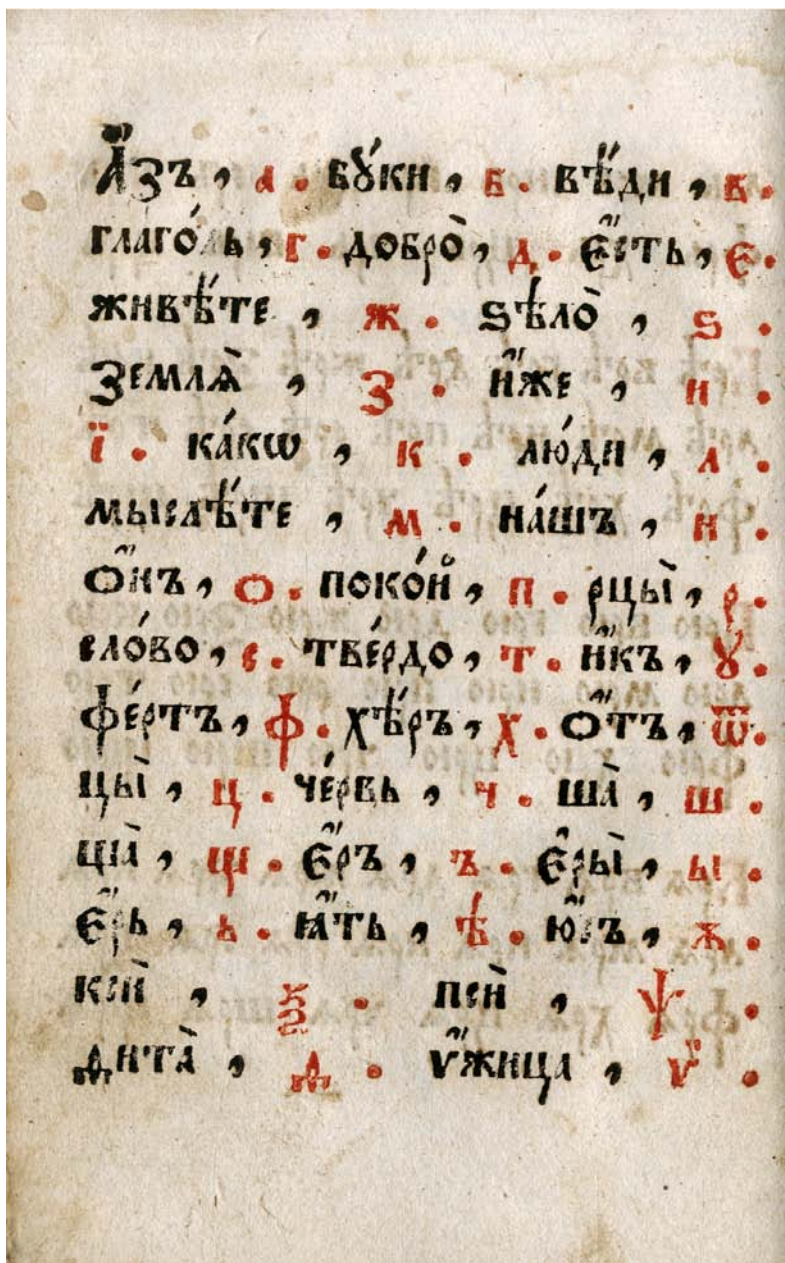 А҆́зъ, а. бꙋ́ки, б. вѣ́ди, в.
глаго́ль, г. добро̀, д. є҆́сть, є.
живѣ́те, ж. ѕѣло̀, ѕ.
Землѧ̀, З. и҆́же, и.
ї. ка́кѡ, к. лю́ди, л.
мыслѣ́те, м. на́шъ, н.
О҆́нъ, о. поко́й, п. рцы̀, р.
сло́во, с. тве́рдо, т. и҆́къ, ꙋ.
фе́ртъ, ф. хѣ́ръ, х. О҆́тъ, ѿ.
цы̀, ц. че́рвь, ч. ша̀, ш.
ща̀, щ. є҆́ръ, ъ. є҆ры̀, ы.
є҆́рь, ь. ꙗ҆́ть, ѣ. ю҆́съ, ѫ.
ксѝ, ѯ. псѝ, ѱ.
ѳита̀, ѳ. ѵ҆́жица, ѵ.